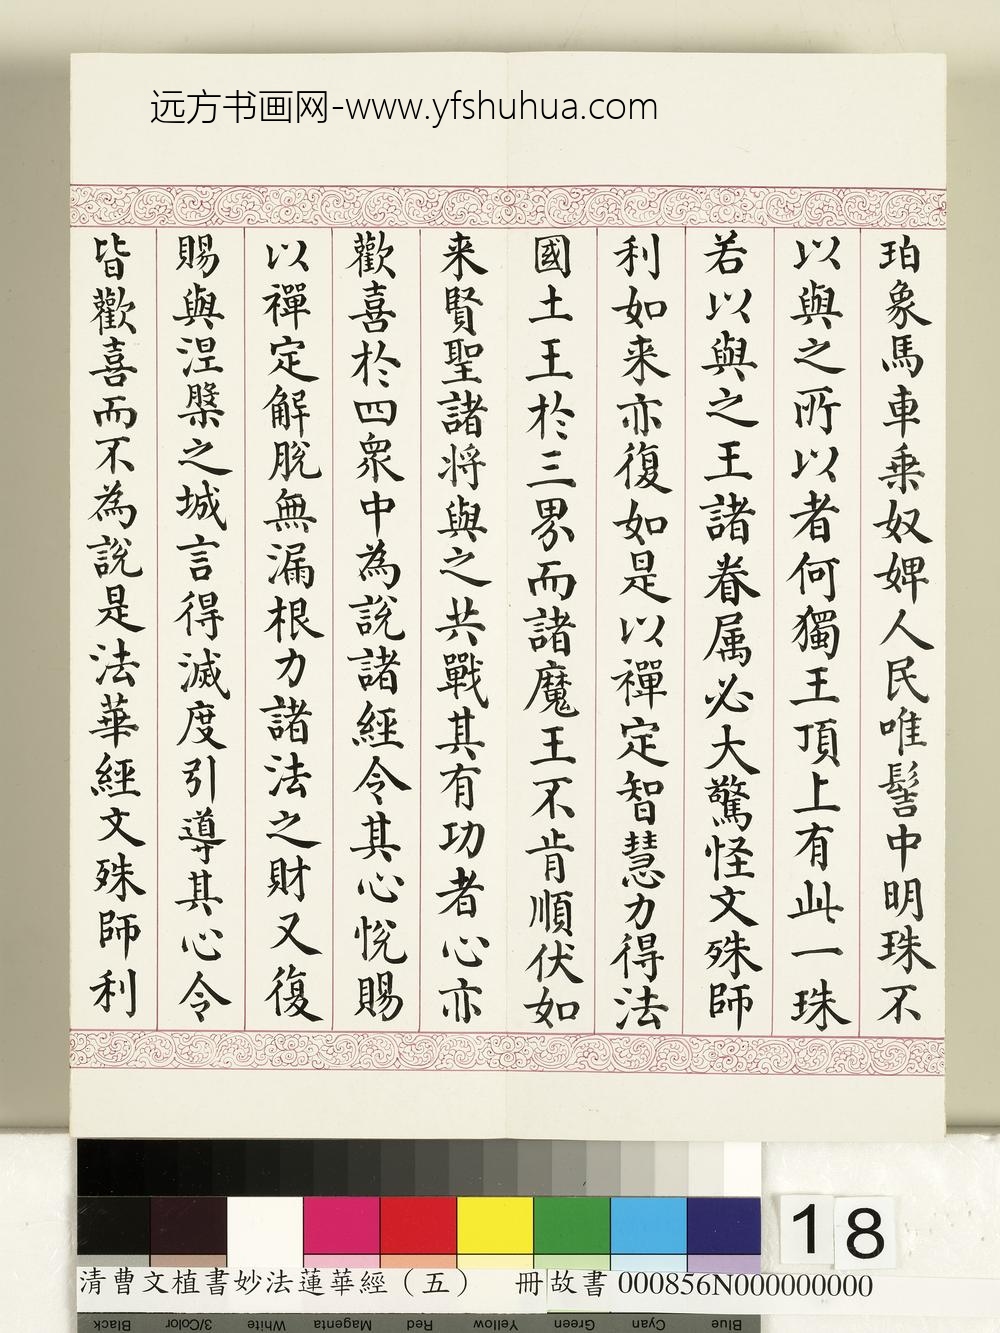 远方书画网-www.yfshuhua.com
珀象馬車乗奴婢人民唯髻中明珠不
以與之所以者何獨王頂上有此一珠
若以與之王諸眷属必大驚怪文殊師
利如来亦復如是以禪定智慧力得法
國土王於三界而諸魔王不肯順伏如
来賢聖諸将與之共戰其有功者心亦
歡喜於四衆中為說諸經令其心悅賜
以禪定解脫無漏根力諸法之財又復
賜與涅槃之城言得滅度引導其心令
皆歡喜而不為說是法華經文殊師利
18
清曹文植書妙法蓮華經（五） 冊 故書 000856N000000000
Black 3/Color White Magenta Red Yellow Green Cyan Blue